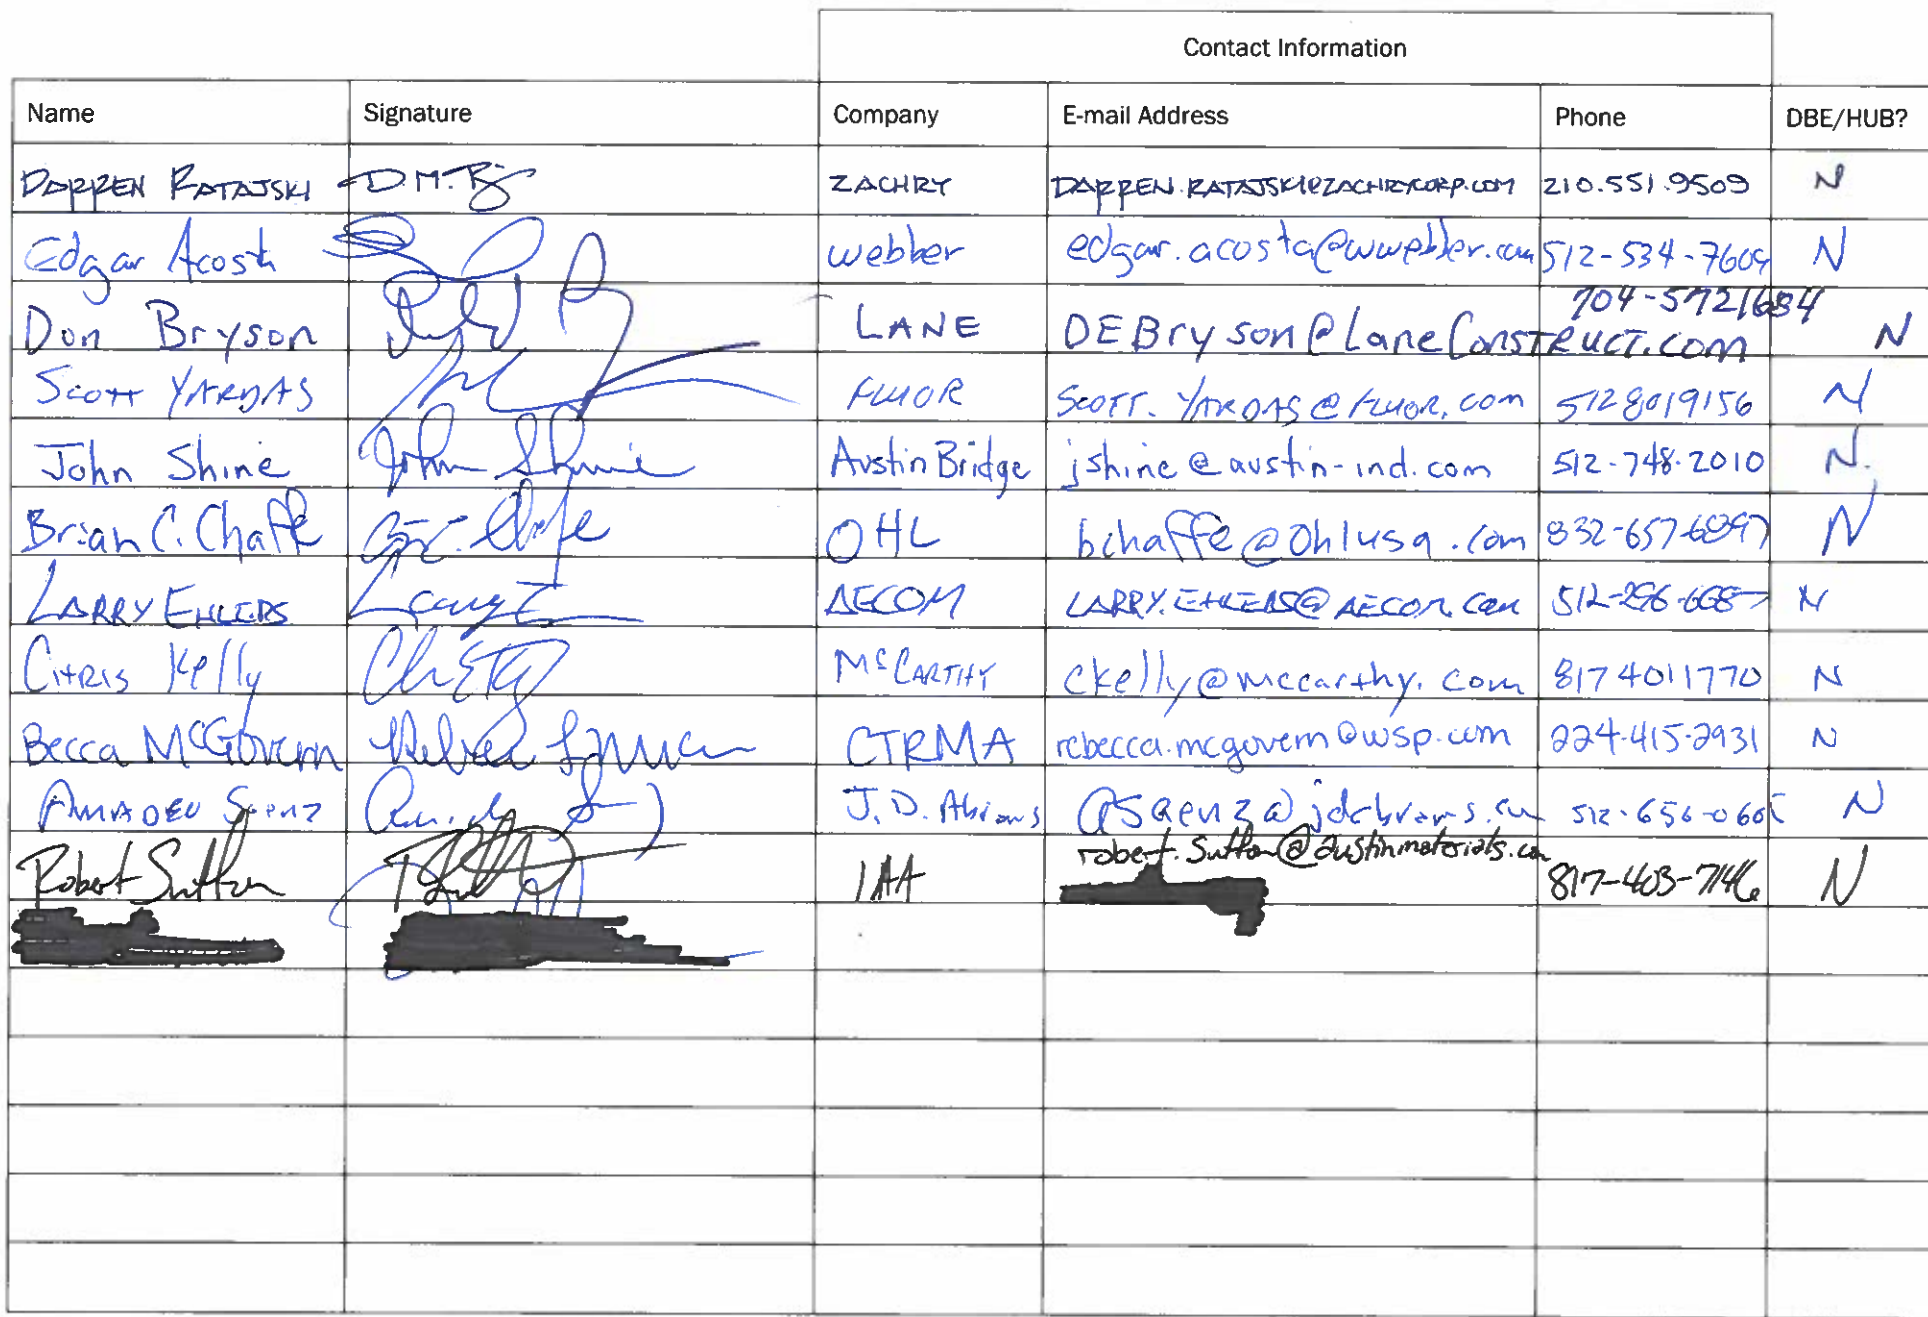 Contact Information
Name Signature Company E-mail Address Phone DBE/HUB?
DARREN RATAJSKI D.M. ZACHRY DARREN.RATAJSKI@ZACHRYCORP.COM 210.551.9509 N
Edgar Acosta webber edgar.acosta@wwebber.com 512-534-7609 N
704-5721684
Don Bryson LANE DEBryson@LaneConstRUCT.com N
Scott YARDAS FLUOR SCOTT.YARDAS@FLUOR.com 5128019156 N
John Shine John Shine Austin Bridge jshine@austin-ind.com 512-748-2010 N.
Brian C. Chaffe OHL bchaffe@ohlusa.com 832-657-6897 N
LARRY EHLERS AECOM LARRY.EHLERS@AECOM.COM N
CHRIS Kelly McCARTHY ckelly@mccarthy.com 8174011770 N
Becca McGovern CTRMA rebecca.mcgovern@wsp.com 224-415-2931 N
AMADEO Saenz J.D. Abrams asaenz@jdabrams.com N
robert.sutton@austinmaterials.com
Robert Sutton 817-403-7146 N